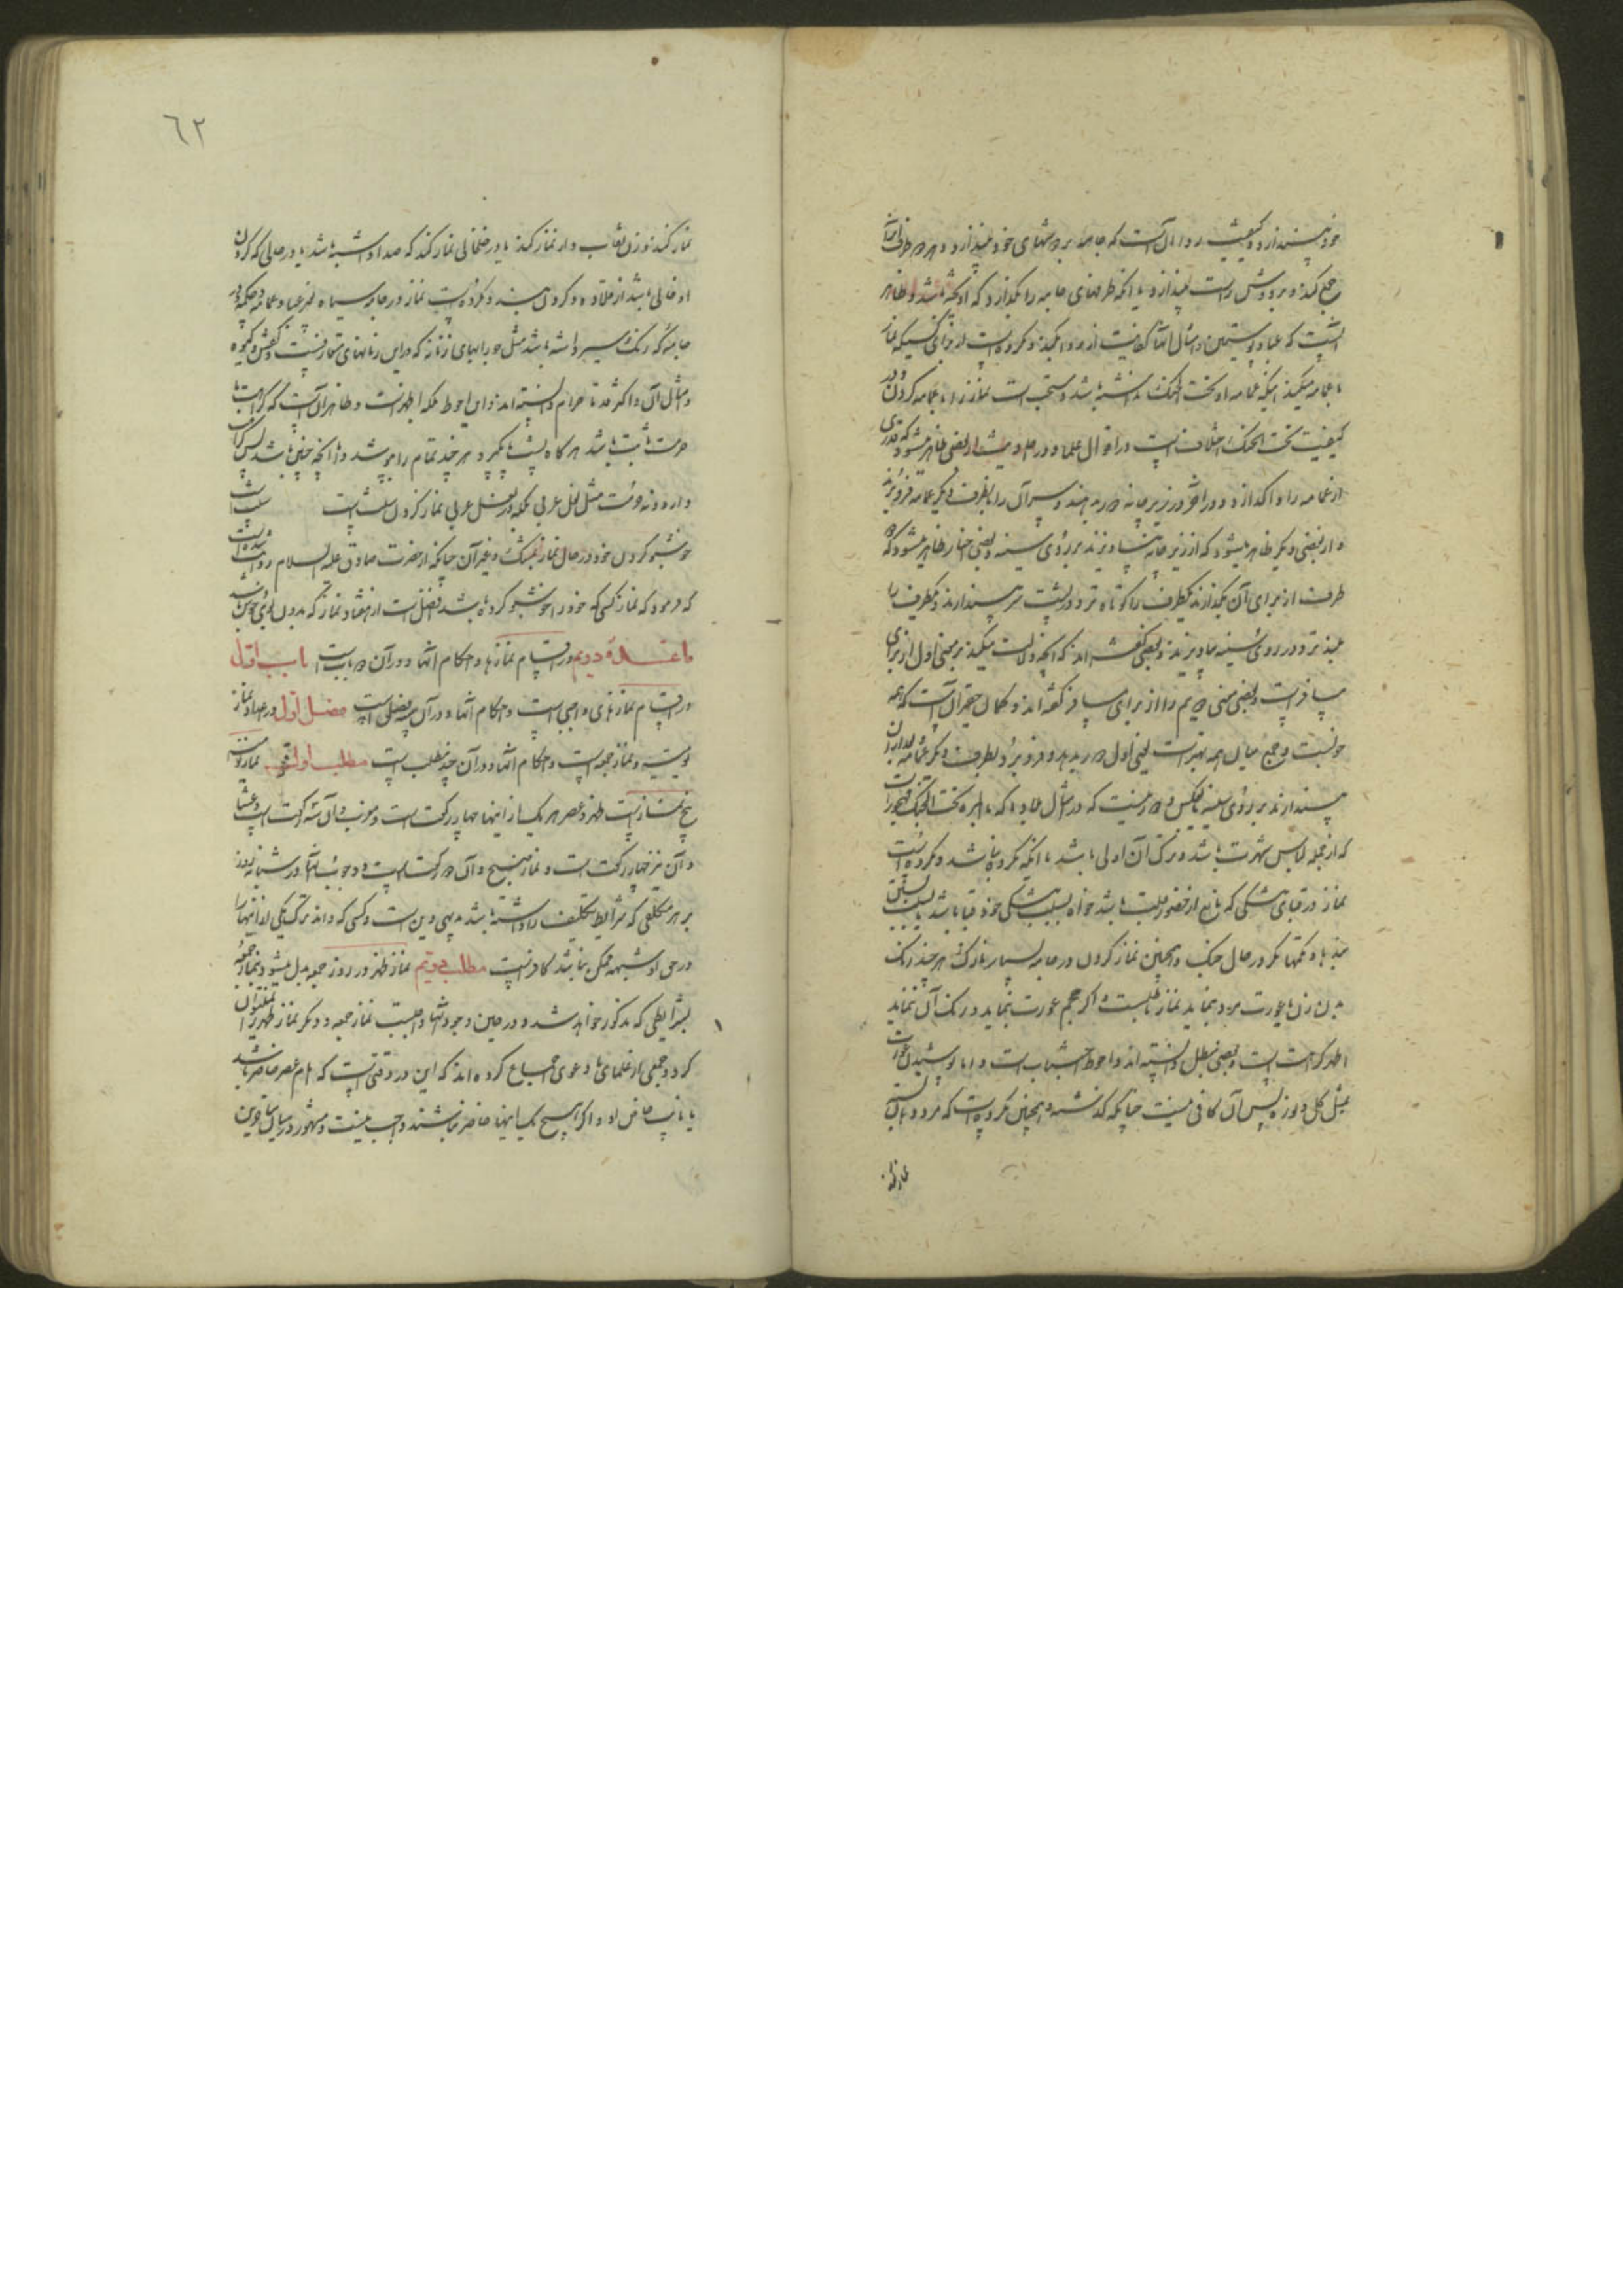 خود بیندازد و کیفیت ردا آن است که جامه بر دوشهای خود بیندازد و هر دو طرف آنرا
جمع کند و بر دوش راست بیندازد یا آنکه طرفهای جامه را بگذارد که آویخته باشد و ظاهر
آنست که عبا و پوستین و امثال آنها کفایت از ردا میکند و مکروه است از برای کسیکه نماز
با عمامه میکند اینکه عمامه او تحت الحنک نداشته باشد و مستحب است نماز را با عمامه کردن و در
کیفیت تحت الحنک اختلاف است در اقوال علما و در احادیث از بعضی ظاهر میشود که قدری
از عمامه را وا گذارد و در آخر در زیر چانه در بدهند و سر آن را بطرف دیگر عمامه فرو برند
و از بعضی دیگر ظاهر میشود که از زیر چانه بیاویزند بر روی سینه و بعضی اخبار ظاهر میشود که دو
طرف از برای آن بگذارند یکطرف را کوتاه تر و در پشت سر بیندازند و یکطرف را
بلند تر و در روی سینه بیاویزند و بعضی گفته اند که آنچه دلالت میکند بر معنی اول از برای
مسافر است و بعضی معنی دویم را از برای مسافر گفته اند و گمان حقیر آن است که همه
خوبست و جمع میان همه بهتر است یعنی اول در بدهد و فرو برد بطرف دیگر عمامه بعد از آن
بیندازند بر روی سینه یا بعکس و دور نیست که در مثال بلاد ما که بالمره تحت الحنک مهجور است
که از جمله لباس شهرت باشد و ترک آن اولی باشد یا آنکه مکروه نباشد و مکروه است
نماز در قبای تنگی که مانع از حضور قلب باشد خواه بسبب تنگی خود قبا باشد یا بسبب بستن
بندها و تکمها مگر در حال جنگ و همچنین نماز کردن در جامه بسیار نازک هر چند رنگ
بدن زن یا عورت مرد بنماید نماز باطلست و اگر حجم عورت بنماید و رنگ آن ننماید
اظهر کراهت است و بعضی مبطل دانسته اند و احوط اجتناب است و اما پوشیدن عورت
بمثل گل و نوره پس آن کافی نیست چنانکه گذشت و همچنین مکروه است که مرد دهان بسته
نماز کند
٦٢
نماز کند و زن نقاب دار نماز کند یا در خلخالی نماز کند که صدا داشته باشد یا در حالی که گردن
او خالی باشد از قلاده و گردن بند و مکروه است نماز در جامه سیاه بغیر عبا و عمامه و چکمه و در
جامه که رنگ سیر داشته باشد مثل جورابهای زنانه که در این زمانهای متعارفست و کفش و گیوه
و مثال آن و اکثر قدما حرام دانسته اند و این احوط بلکه اظهر است و ظاهر آن است که کراهت یا
حرمت ثابت باشد هر گاه پشت پا بگیرد هر چند تمام را بپوشد و اما آنچه چنین باشد پس کراهت
وارد و نه حرمت مثل نعل عربی بلکه در نعل عربی نماز کردن سنت است
خوشبو کردن خود در حال نماز بمشک و غیر آن چنانکه از حضرت صادق علیه السلام روایت شده است
که فرمود که نماز کسی که خود را خوشبو کرده باشد افضل است از هفتاد نماز که بدون بوی خوش باشد
مائدهٔ دویم در اقسام نمازها و احکام آنها و در آن دو بابست باب اول
در اقسام نمازهای واجبی است و احکام آنها و در آن سه فصل است فصل اول در اعداد نماز
یومیه و نماز جمعه است و احکام آنها و در آن چند مطلب است مطلب اول نماز یومیه
پنج نماز است ظهر و عصر هر یک از اینها چهار رکعت است و مغرب و آن سه رکعت است و عشا
و آن نیز چهار رکعت است و نماز صبح و آن دو رکعت است و وجوب آنها در شبانه روز
بر هر مکلفی که شرایط تکلیف را داشته باشد بدیهی دین است و کسی که داند ترک یکی از اینها را
در حق او شبهه ممکن نباشد کافر است مطلب دویم نماز ظهر در روز جمعه بدل میشود بنماز جمعه
بشرایطی که مذکور خواهد شد و در حین وجود آنها واجبست نماز جمعه و دیگر نماز ظهر را نمیتوان
کرد و جمعی از علمای ما دعوی اجماع کرده اند که این در وقتی است که امام عصر حاضر باشد
یا نایب خاص او و اگر هیچ یک اینها حاضر نباشند واجب نیست و مشهور در میان متأخرین